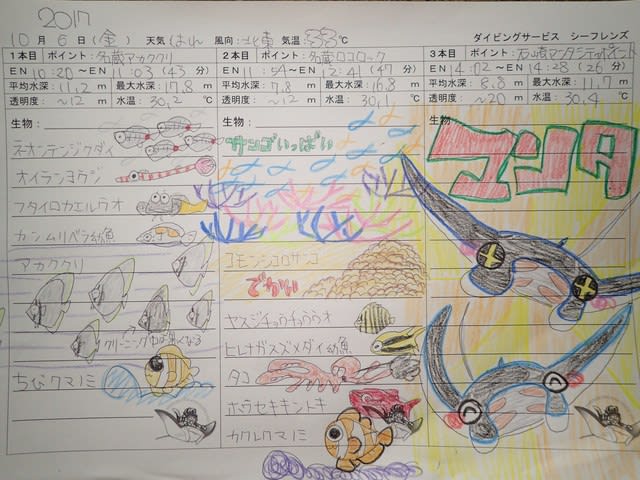 2017
10月6日(金) 天気 はれ 風向 北東 気温 33℃ ダイビングサービス シーフレンズ
1本目 ポイント: 名蔵アカククリ
EN 10:20～EN 11:03 (43分)
平均水深: 11.2 m 最大水深: 17.8 m
透明度: ～12 m 水温: 30.2 ℃
生物:
ネオンテンジクダイ
オイランヨウジ
フタイロカエルウオ
カンムリベラ幼魚
アカククリ
クリーニング中は黒くなる
ちびクマノミ
2本目 ポイント: 名蔵ロコロック
EN 11:54～EN 12:41 (47分)
平均水深: 7.8 m 最大水深: 16.8 m
透明度: ～12 m 水温: 30.1 ℃
生物:
サンゴいっぱい
コモンシコロサンゴ
でかい
ヤスジチョウチョウウオ
ヒレナガスズメダイ幼魚
タコ
ホウセキキントキ
カクレクマノミ
3本目 ポイント: 石崎マンタシティポイント
EN 14:02～EN 14:28 (26分)
平均水深: 8.8 m 最大水深: 11.7 m
透明度: ～20 m 水温: 30.4 ℃
生物:
マンタ